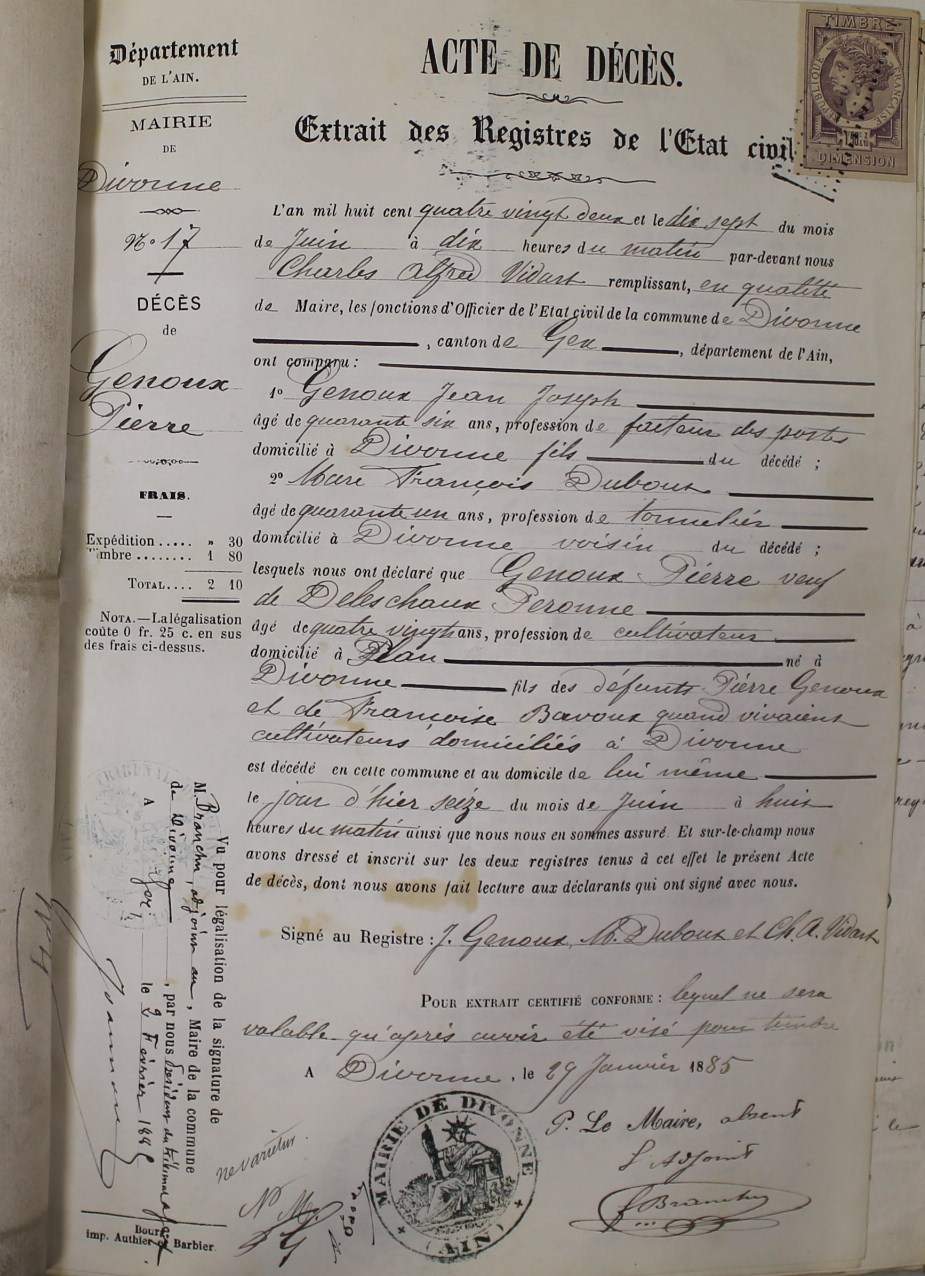 Département
DE L'AIN.
MAIRIE
DE
Divonne
N.o 17
DÉCÈS
de
Genoux
Pierre
FRAIS.
Expédition ..... " 30
Timbre ........ 1 80
TOTAL.... 2 10
NOTA.—La légalisation
coûte 0 fr. 25 c. en sus
des frais ci-dessus.
TIMBRE
RÉPUBLIQUE FRANÇAISE
DIMENSION
ACTE DE DÉCÈS.
Extrait des Registres de l'Etat civil
L'an mil huit cent quatre vingt deux et le dix sept du mois
de Juin à dix heures du matin par-devant nous
Charles Alfred Vidart remplissant, en qualité
de Maire, les fonctions d'Officier de l'Etat civil de la commune de Divonne
, canton de Gex , département de l'Ain,
ont comparu :
1o Genoux Jean Joseph
âgé de quarante six ans, profession de facteur des postes
domicilié à Divonne fils du décédé ;
2o Marc François Duboux
âgé de quarante un ans, profession de tonnelier
domicilié à Divonne voisin du décédé ;
lesquels nous ont déclaré que Genoux Pierre veuf
de Deleschaux Peronne
âgé de quatre vingts ans, profession de cultivateur
domicilié à Plan né à
Divonne fils des défunts Pierre Genoux
et de Françoise Bavoux quand vivaient
cultivateurs domiciliés à Divonne
est décédé en cette commune et au domicile de lui même
le jour d'hier seize du mois de Juin à huit
heures du matin ainsi que nous nous en sommes assuré. Et sur-le-champ nous
avons dressé et inscrit sur les deux registres tenus à cet effet le présent Acte
de décès, dont nous avons fait lecture aux déclarants qui ont signé avec nous.
Signé au Registre : J. Genoux, M. Duboux et Ch. A. Vidart
POUR EXTRAIT CERTIFIÉ CONFORME : lequel ne sera
valable qu'après avoir été visé pour timbre
A Divonne, le 29 Janvier 1885
P. Le Maire, absent
L'Adjoint
Branchu
MAIRIE DE DIVONNE
(AIN)
ne varietur
Vu pour légalisation de la signature de
M. Branchu, adjoint au, Maire de la commune
de Divonne , par nous Président du tribunal
A Gex le 2 Février 1885
TRIBUNAL
Bourg
imp. Authier et Barbier.